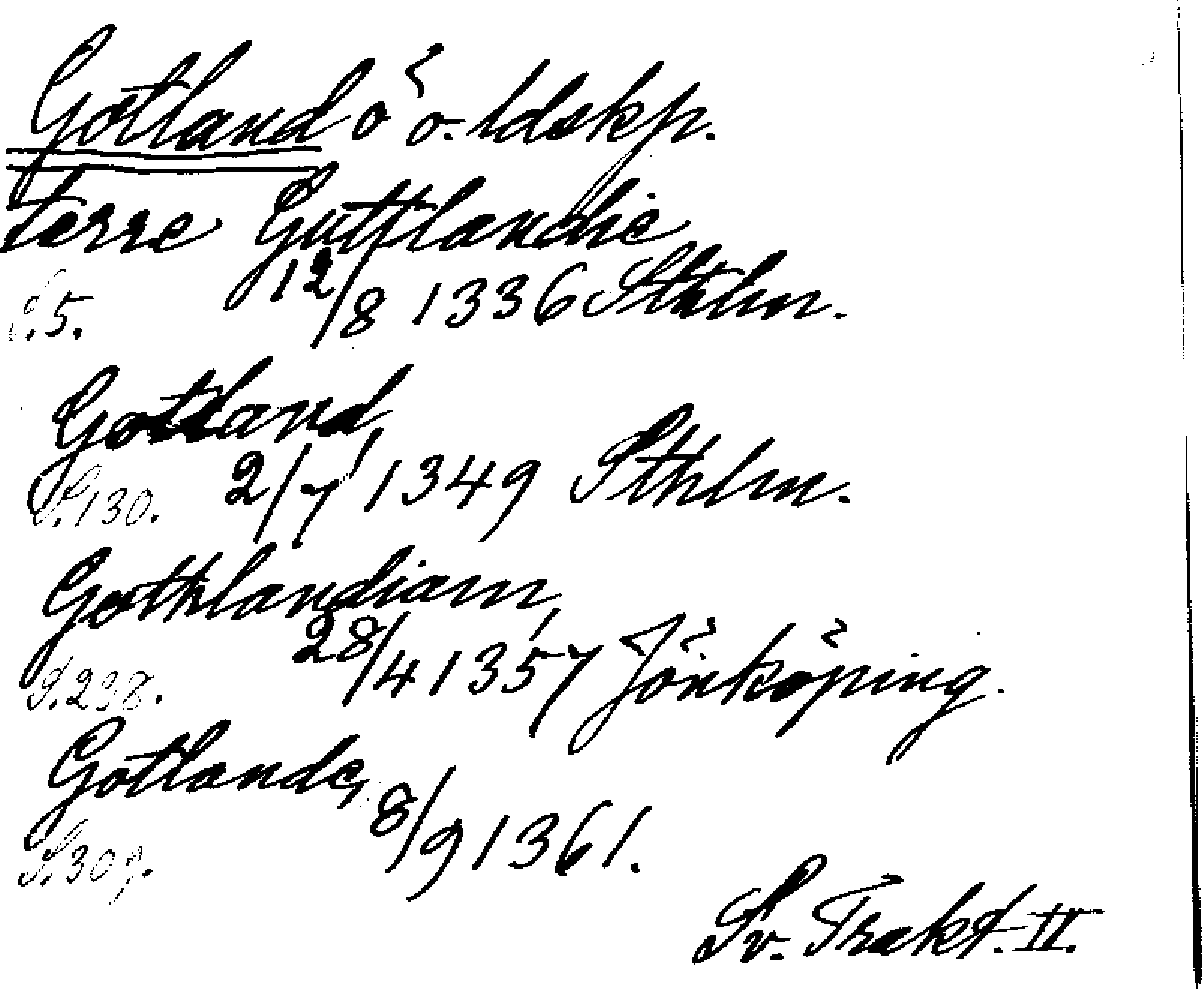 Gotland ö o. ldskp.
terre Guttlandie
S.5. 12/8 1336 Sthlm.
Gotland,
S.130. 2/7 1349 Sthlm.
Gothlandiam,
S.238. 28/4 1357 Jönköping.
Gotlande,
S.309. 8/9 1361.
Sv. Trakt. II.